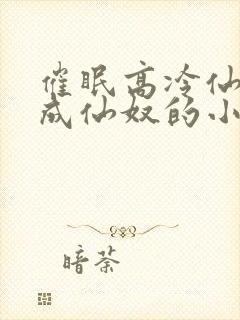 催眠高冷仙
成仙奴的小
暗荼